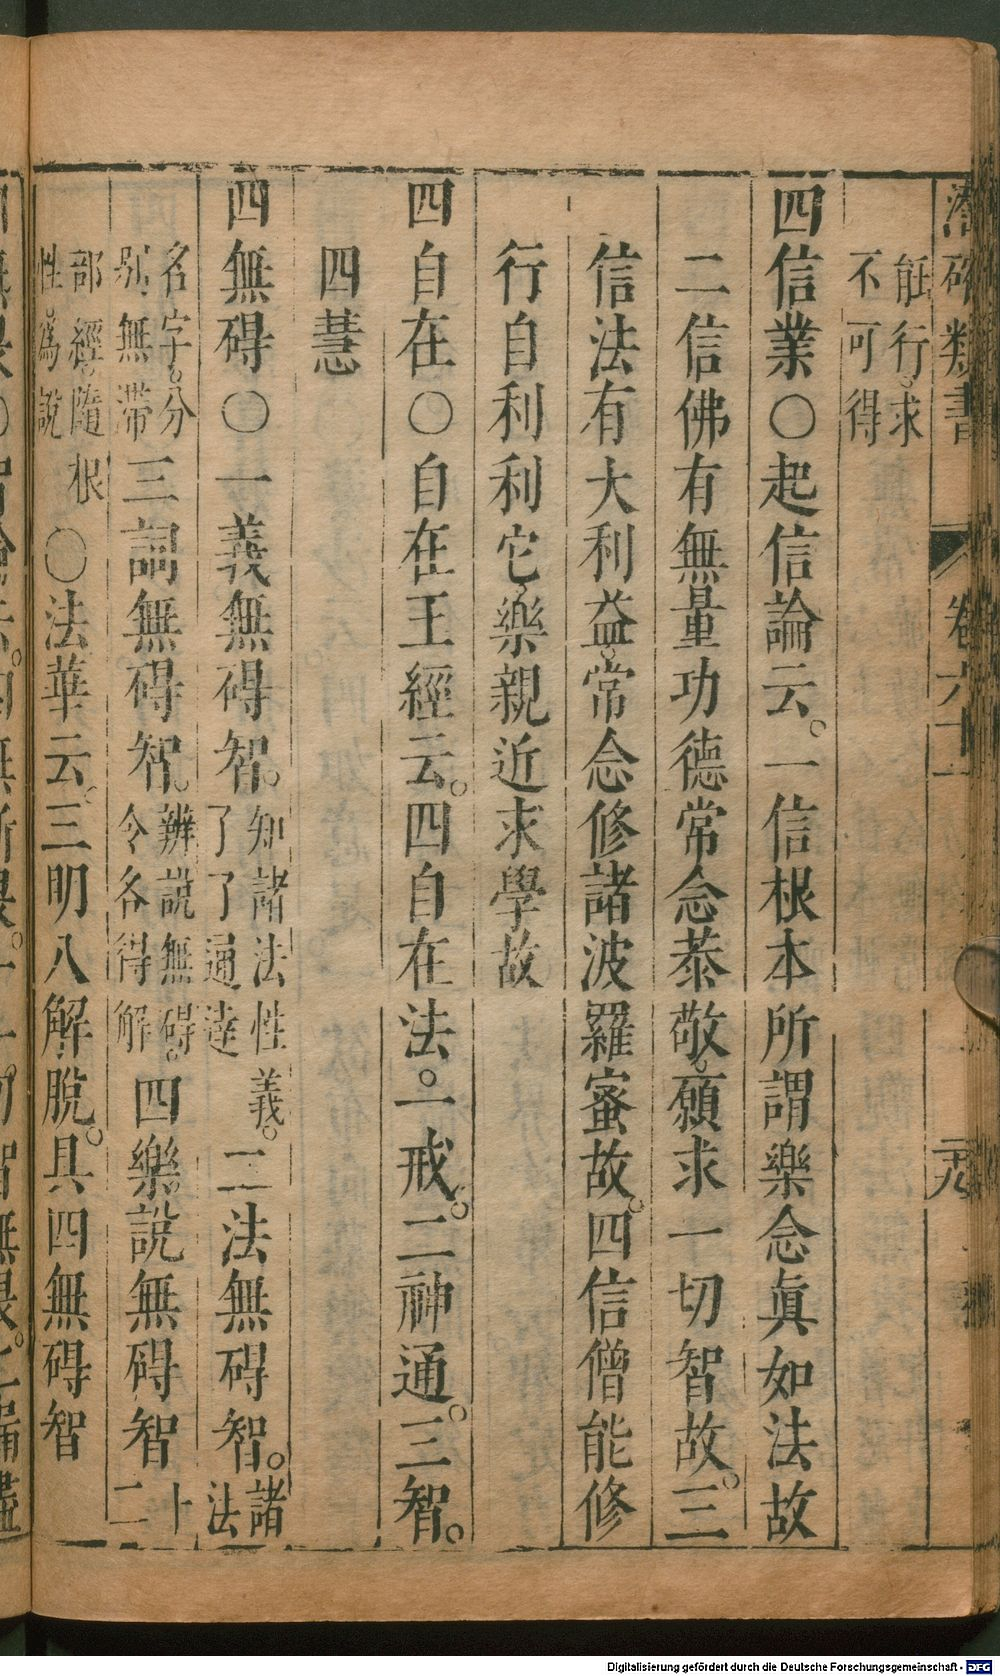 潛確類書 卷六十一 二十九
能行。求
不可得
四信業〇起信論云。一信根本所謂樂念眞如法故
二信佛有無量功德常念恭敬。願求一切智故。三
信法有大利益。常念修諸波羅蜜故。四信僧能修
行自利利它樂親近求學故
四自在〇自在王經云。四自在法。一戒。二神通。三智。
四慧
四無碍〇一義無碍智。知諸法性義。了了通達 二法無碍智。諸法
名字。分別無滯 三詞無碍智。辨說無碍。令各得解 四樂說無碍智 十二
部經隨根性爲說 〇法華云。三明八解脫。具四無碍智
Digitalisierung gefördert durch die Deutsche Forschungsgemeinschaft - DFG